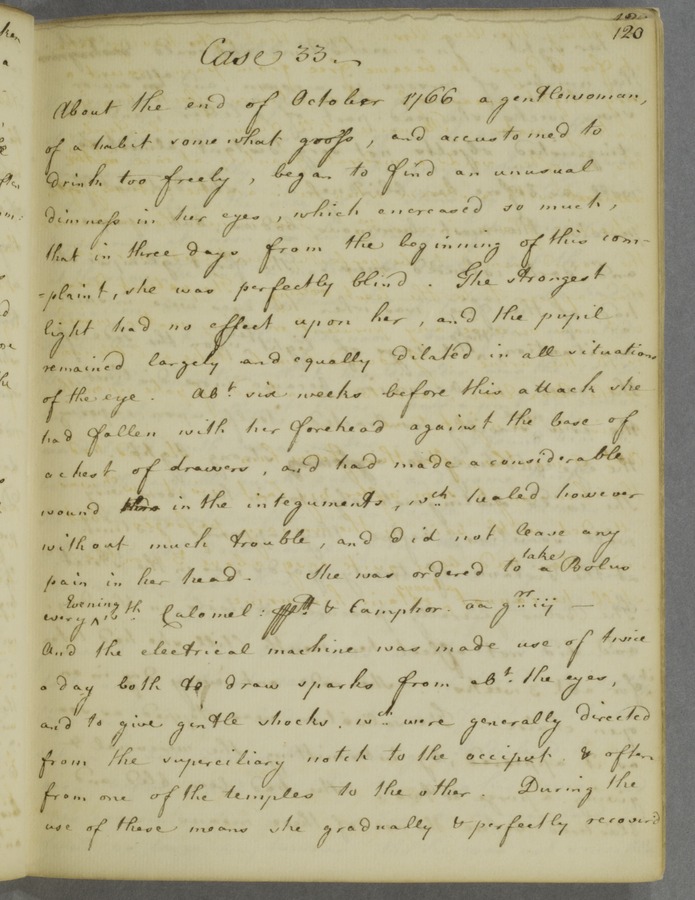 120
Case 33.
About the end of October 1766 a gentlewoman,
of a habit somewhat gross, and accustomed to
drink too freely, began to find an unusual
dimness in her eyes, which encreased so much,
that in three days from the beginning of this com-
-plaint, she was perfectly blind. The strongest
light had no effect upon her, and the pupil
remained largely and equally dilated in all situations
of the eye. Abt. six weeks before this attack she
had fallen with her forehead against the base of
a chest of drawers, and had made a considerable
wound in the integuments, wch. healed however
without much trouble, and did not leave any
pain in her head. She was ordered to take a Bolus
every Evening wth Calomel: & Camphor. āā grs. iij —
And the electrical machine was made use of twice
a day both to draw sparks from abt. the eyes,
and to give gentle shocks. wch. were generally directed
from the superciliary notch to the occiput & often
from one of the temples to the other. During the
use of these means she gradually & perfectly recover'd